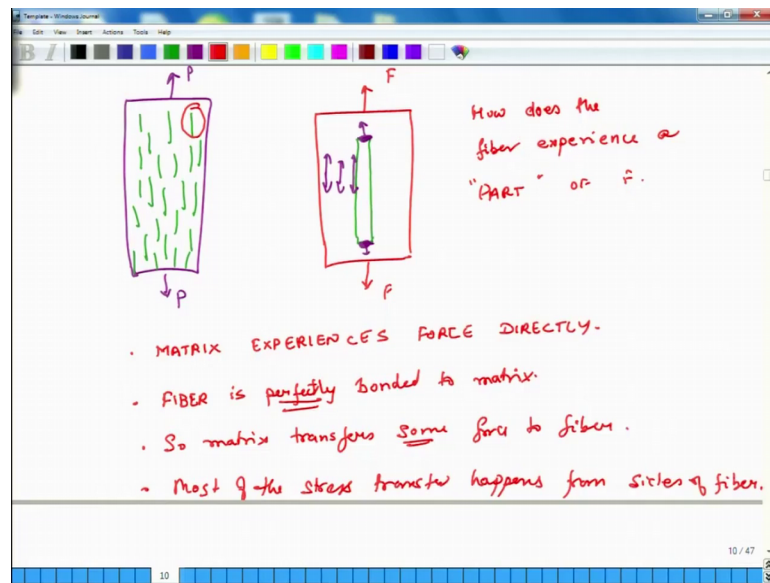 Template - Windows Journal
File Edit View Insert Actions Tools Help
B I
P
F
How does the
fiber experience a
"PART" OF F.
P
F
. MATRIX EXPERIENCES FORCE DIRECTLY.
- FIBER is perfectly bonded to matrix.
. So matrix transfers some force to fiber.
- Most of the stress transfer happens from sides of fiber.
10 / 47
10